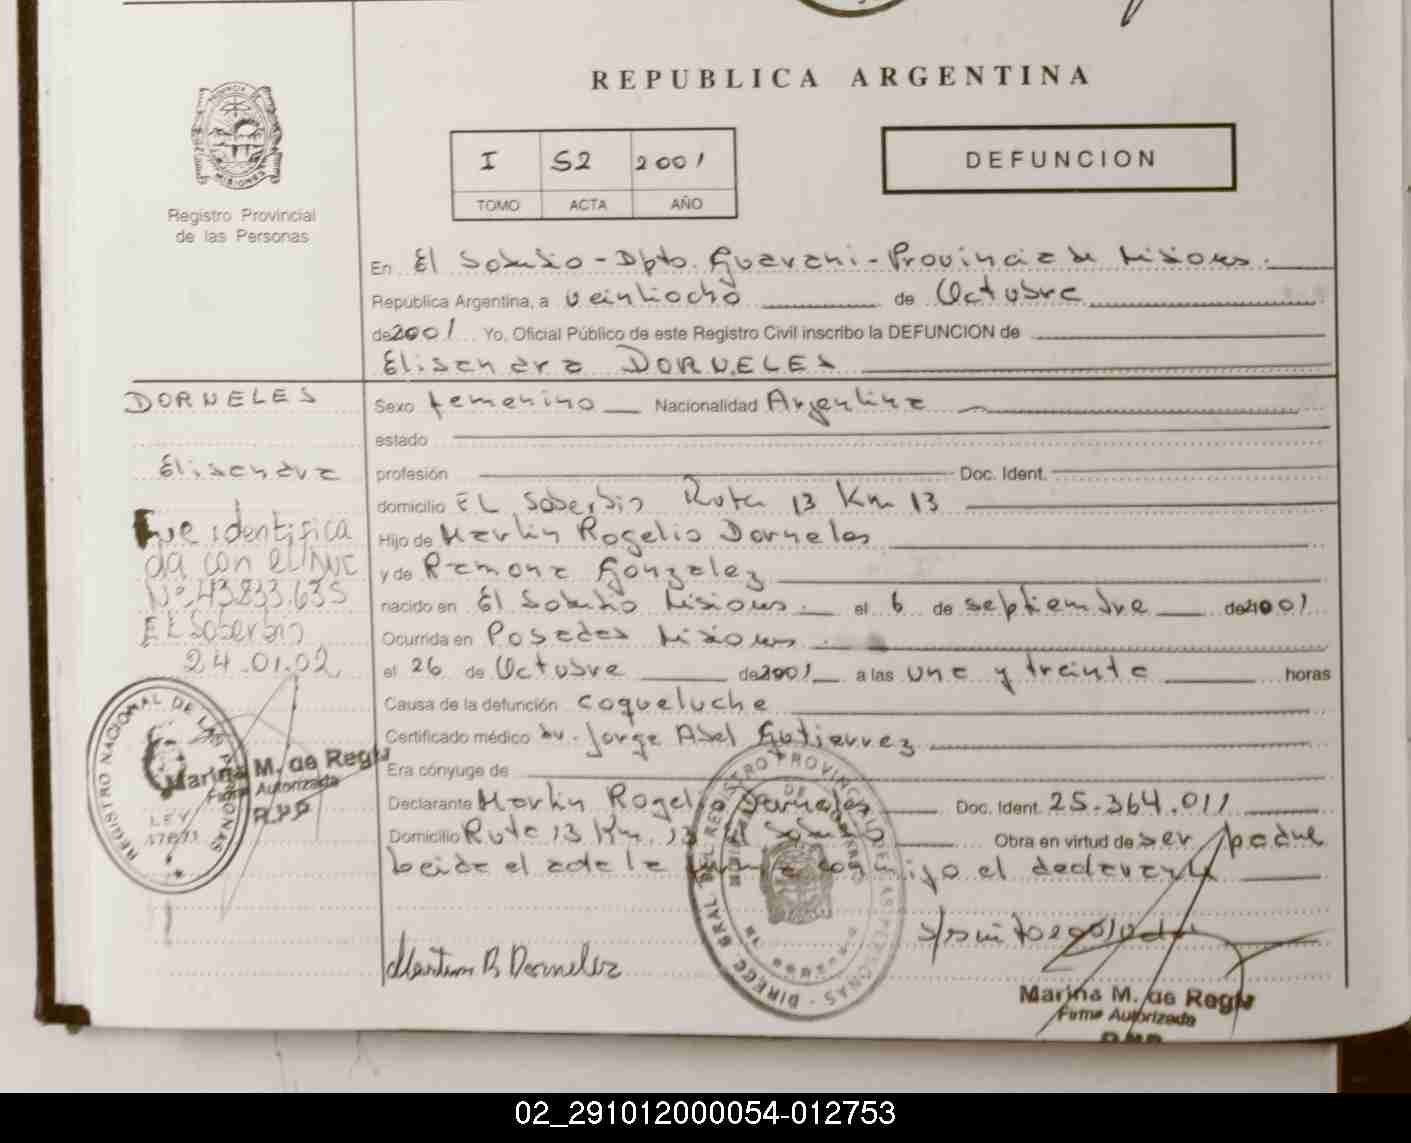 REPUBLICA ARGENTINA
I 52 2001
TOMO ACTA AÑO
DEFUNCION
Registro Provincial
de las Personas
En El Soberbio - Dpto. Guarani - Provincia de Misiones.
República Argentina, a veintiocho de Octubre
de 2001 Yo, Oficial Público de este Registro Civil inscribo la DEFUNCION de
Elisandra DORNELES
DORNELES
Elisandra
Fue identifica
da con el DNI
Nº 43.833.635
El Soberbio
24.01.02
REGISTRO NACIONAL DE LAS PERSONAS
LEY
17671
Marina M. de Regiu
Firma Autorizada
RPP
Sexo femenino Nacionalidad Argentina
estado
profesión Doc. Ident.
domicilio EL Soberbio Ruta 13 Km 13
Hijo de Martin Rogelio Dorneles
y de Ramona Gonzalez
nacido en El Soberbio Misiones. el 6 de septiembre de 2001
Ocurrida en Posadas Misiones
el 26 de Octubre de 2001 a las una y treinta horas
Causa de la defunción coqueluche
Certificado médico Dr. Jorge Abel Gutierrez
Era cónyuge de
Declarante Martin Rogelio Dorneles Doc. Ident. 25.364.011
Domicilio Ruta 13 Km. 13 El Soberbio Obra en virtud de ser padre
Leida el acta la firma conmigo el declarante
DIRECC. GRAL DEL REGISTRO PROVINCIAL DE LAS PERSONAS
Martin R Dorneles
Marina M. de Regiu
Firma Autorizada
02_291012000054-012753